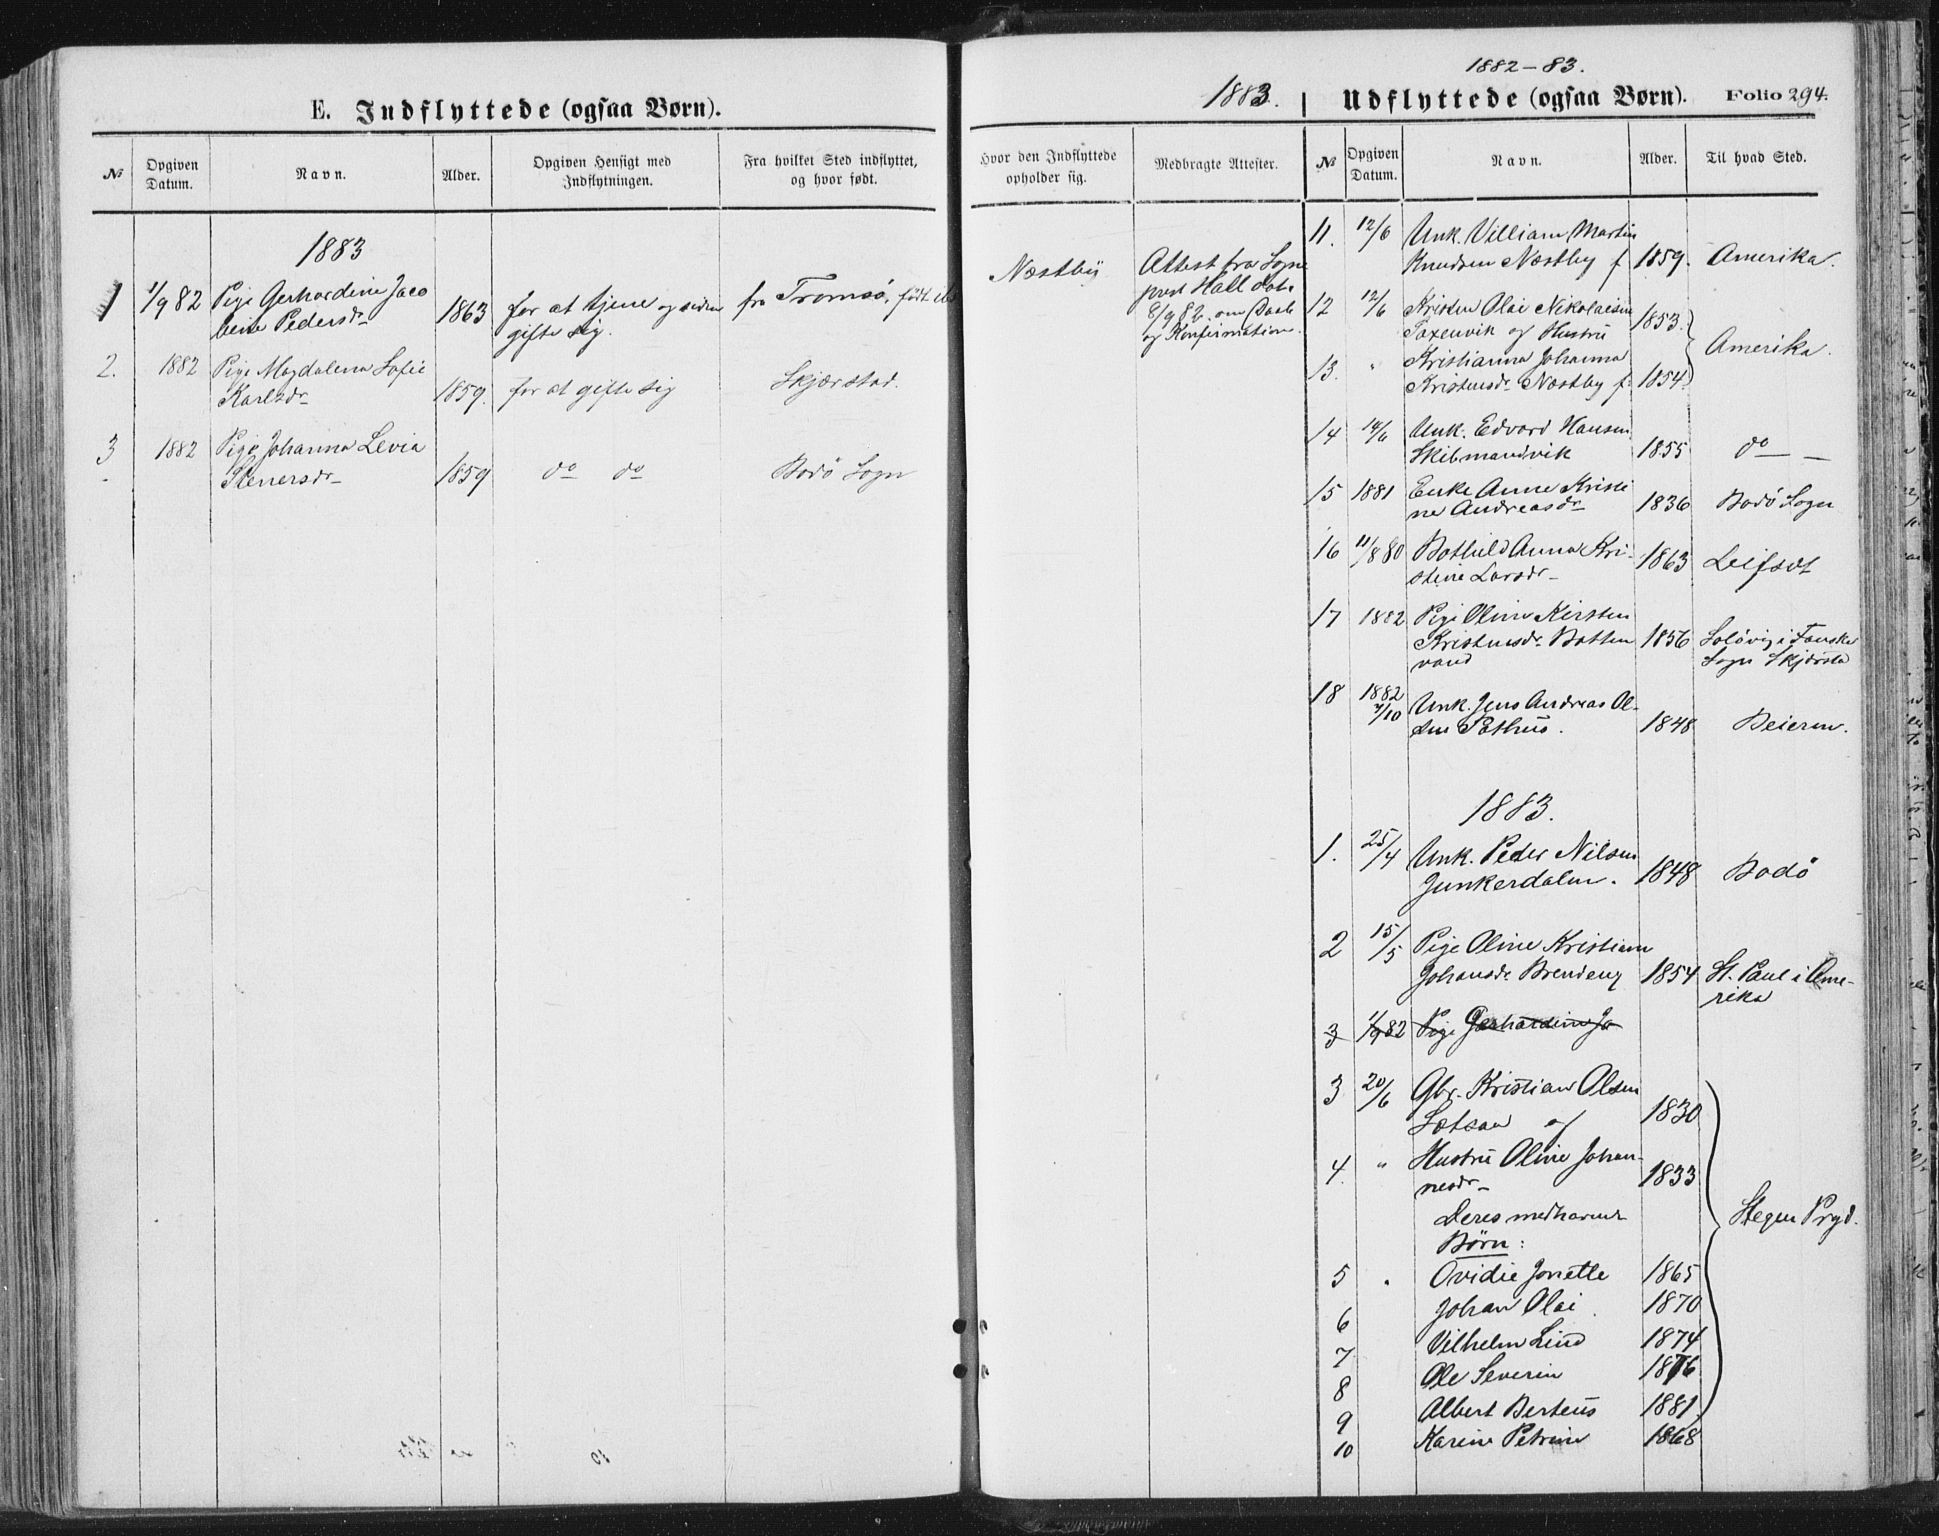 E. Indflyttede (ogsaa Børn).
№
Opgiven Datum.
Navn.
Alder.
Opgiven Hensigt med Indflytningen.
Fra hvilket Sted indflyttet, og hvor født.
1883
1 1/9 82 Pige Gerhardine Jaco
beine Pedersdr 1863 for at tjene og siden
gifte sig. fra Tromsø, født
2. 1882 Pige Magdalena Sofie
Karlsdr 1859. for at gifte sig Skjærstad.
3 1882 Pige Johanna Levia
Stenersdr 1859 do do Bodø Sogn
1882-83.
1883. Udflyttede (ogsaa Børn). Folio 294.
Hvor den Indflyttede opholder sig.
Medbragte Attester.
№
Opgiven Datum.
Navn.
Alder.
Til hvad Sted.
Næstby
Attest fra Sogne
prest Hall dat.
8/9 82. om Daab
og Konfirmation.
11. 12/6 Unk. Villiam Martin
Knudsen Næstby f. 1859. Amerika.
12 12/6 Kristen Olai Nikolaisen
Saxenvik og Hustru 1853.
Amerika.
13. " Kristianna Johanna
Kristensdr Næstby f. 1854
14 14/6 Unk. Edvard Hansen
Skibmandvik 1855 do
15 1881 Enke Anne Kristi
ne Andreasdr 1836 Bodø Sogn
16 11/8 80 Bothild Anna Kri-
stine Larsdr 1863 Leifset
17 1882 Pige Oline Kirsten
Kristensdr Botten 1856 i Fauske
vand Sogn Skjærsta
18 1882
7/10 Unk. Jens Andreas Ol-
sen Pothus. 1848 Beiern.
1883.
1. 25/4 Unk. Peder Nilsen
Junkerdalen. 1848 Bodø
2 15/5 Pige Oline Kristiane
Johansdr Brendeng 1854 St. Paul i Ame-
rika
3 1/9 82 Pige Gerhardine Ja
3 20/6 Gbr. Kristian Olsen
og 1830
4. " Hustru Oline Johan-
nesdr 1833
Deres medhavende
Børn:
Stegen Prgd.
5 " Ovidie Jonette 1865
6 Johan Olai 1870
7 Vilhelm Lind 1874
8 Ole Severin 1876
9 Albert Berteus 1881
10 Karine Petrine 1868